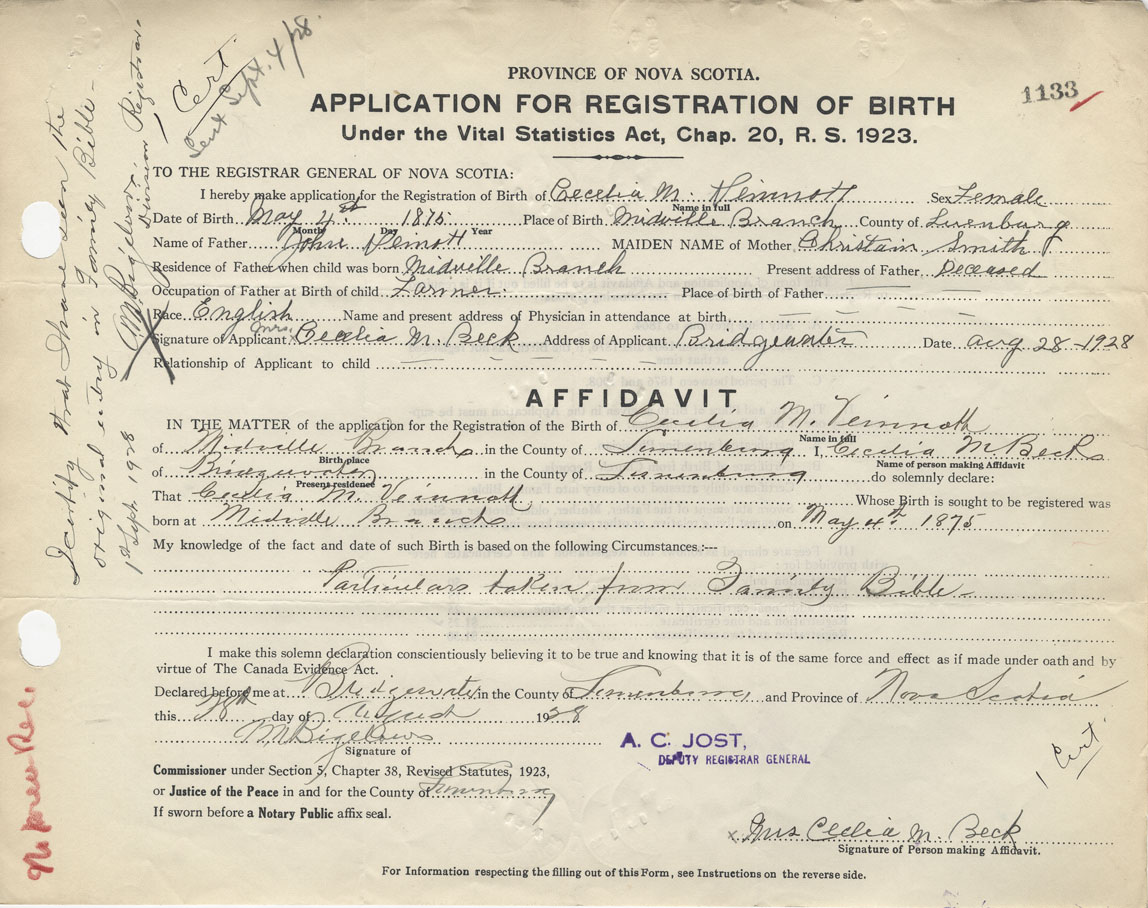 Cert.
Sent Sept. 4/28
I certify that I have seen the
original entry in Family Bible -
1st Sept. 1928
M Bigelow
Division Registrar
PROVINCE OF NOVA SCOTIA.
1133
APPLICATION FOR REGISTRATION OF BIRTH
Under the Vital Statistics Act, Chap. 20, R. S. 1923.
TO THE REGISTRAR GENERAL OF NOVA SCOTIA:
I hereby make application for the Registration of Birth of Cecelia M. Sex Female
Name in full
Date of Birth May 4 1875 Place of Birth Midville Branch County of Lunenburg
Month Day Year
Name of Father John MAIDEN NAME of Mother Christain Smith
Residence of Father when child was born Midville Branch Present address of Father Deceased
Occupation of Father at Birth of child Farmer. Place of birth of Father — —
Race English Name and present address of Physician in attendance at birth, — — — — —
Signature of Applicant x Mrs. Cecelia M. Beck Address of Applicant Bridgewater Date Aug 28 - 1928
Relationship of Applicant to child — — — —
AFFIDAVIT
IN THE MATTER of the application for the Registration of the Birth of Cecilia M. Veinnott
Name in full
of Midville Branch in the County of Lunenburg I, Cecilia M Beck
Birth place Name of person making Affidavit
of Bridgewater in the County of Lunenburg do solemnly declare:
Present residence
That Cecilia M. Veinnott Whose Birth is sought to be registered was
born at Midville Branch on May 4th 1875
My knowledge of the fact and date of such Birth is based on the following Circumstances:---
Particulars taken from Family Bible -
I make this solemn declaration conscientiously believing it to be true and knowing that it is of the same force and effect as if made under oath and by
virtue of The Canada Evidence Act.
Declared before me at Bridgewater in the County of Lunenburg and Province of Nova Scotia
this 28th day of August 1928
M Bigelow
Signature of
A. C. JOST,
DEPUTY REGISTRAR GENERAL
1 Cert
Commissioner under Section 5, Chapter 38, Revised Statutes, 1923,
or Justice of the Peace in and for the County of Lunenburg
If sworn before a Notary Public affix seal.
x Mrs Cecilia M. Beck
Signature of Person making Affidavit.
For Information respecting the filling out of this Form, see Instructions on the reverse side.